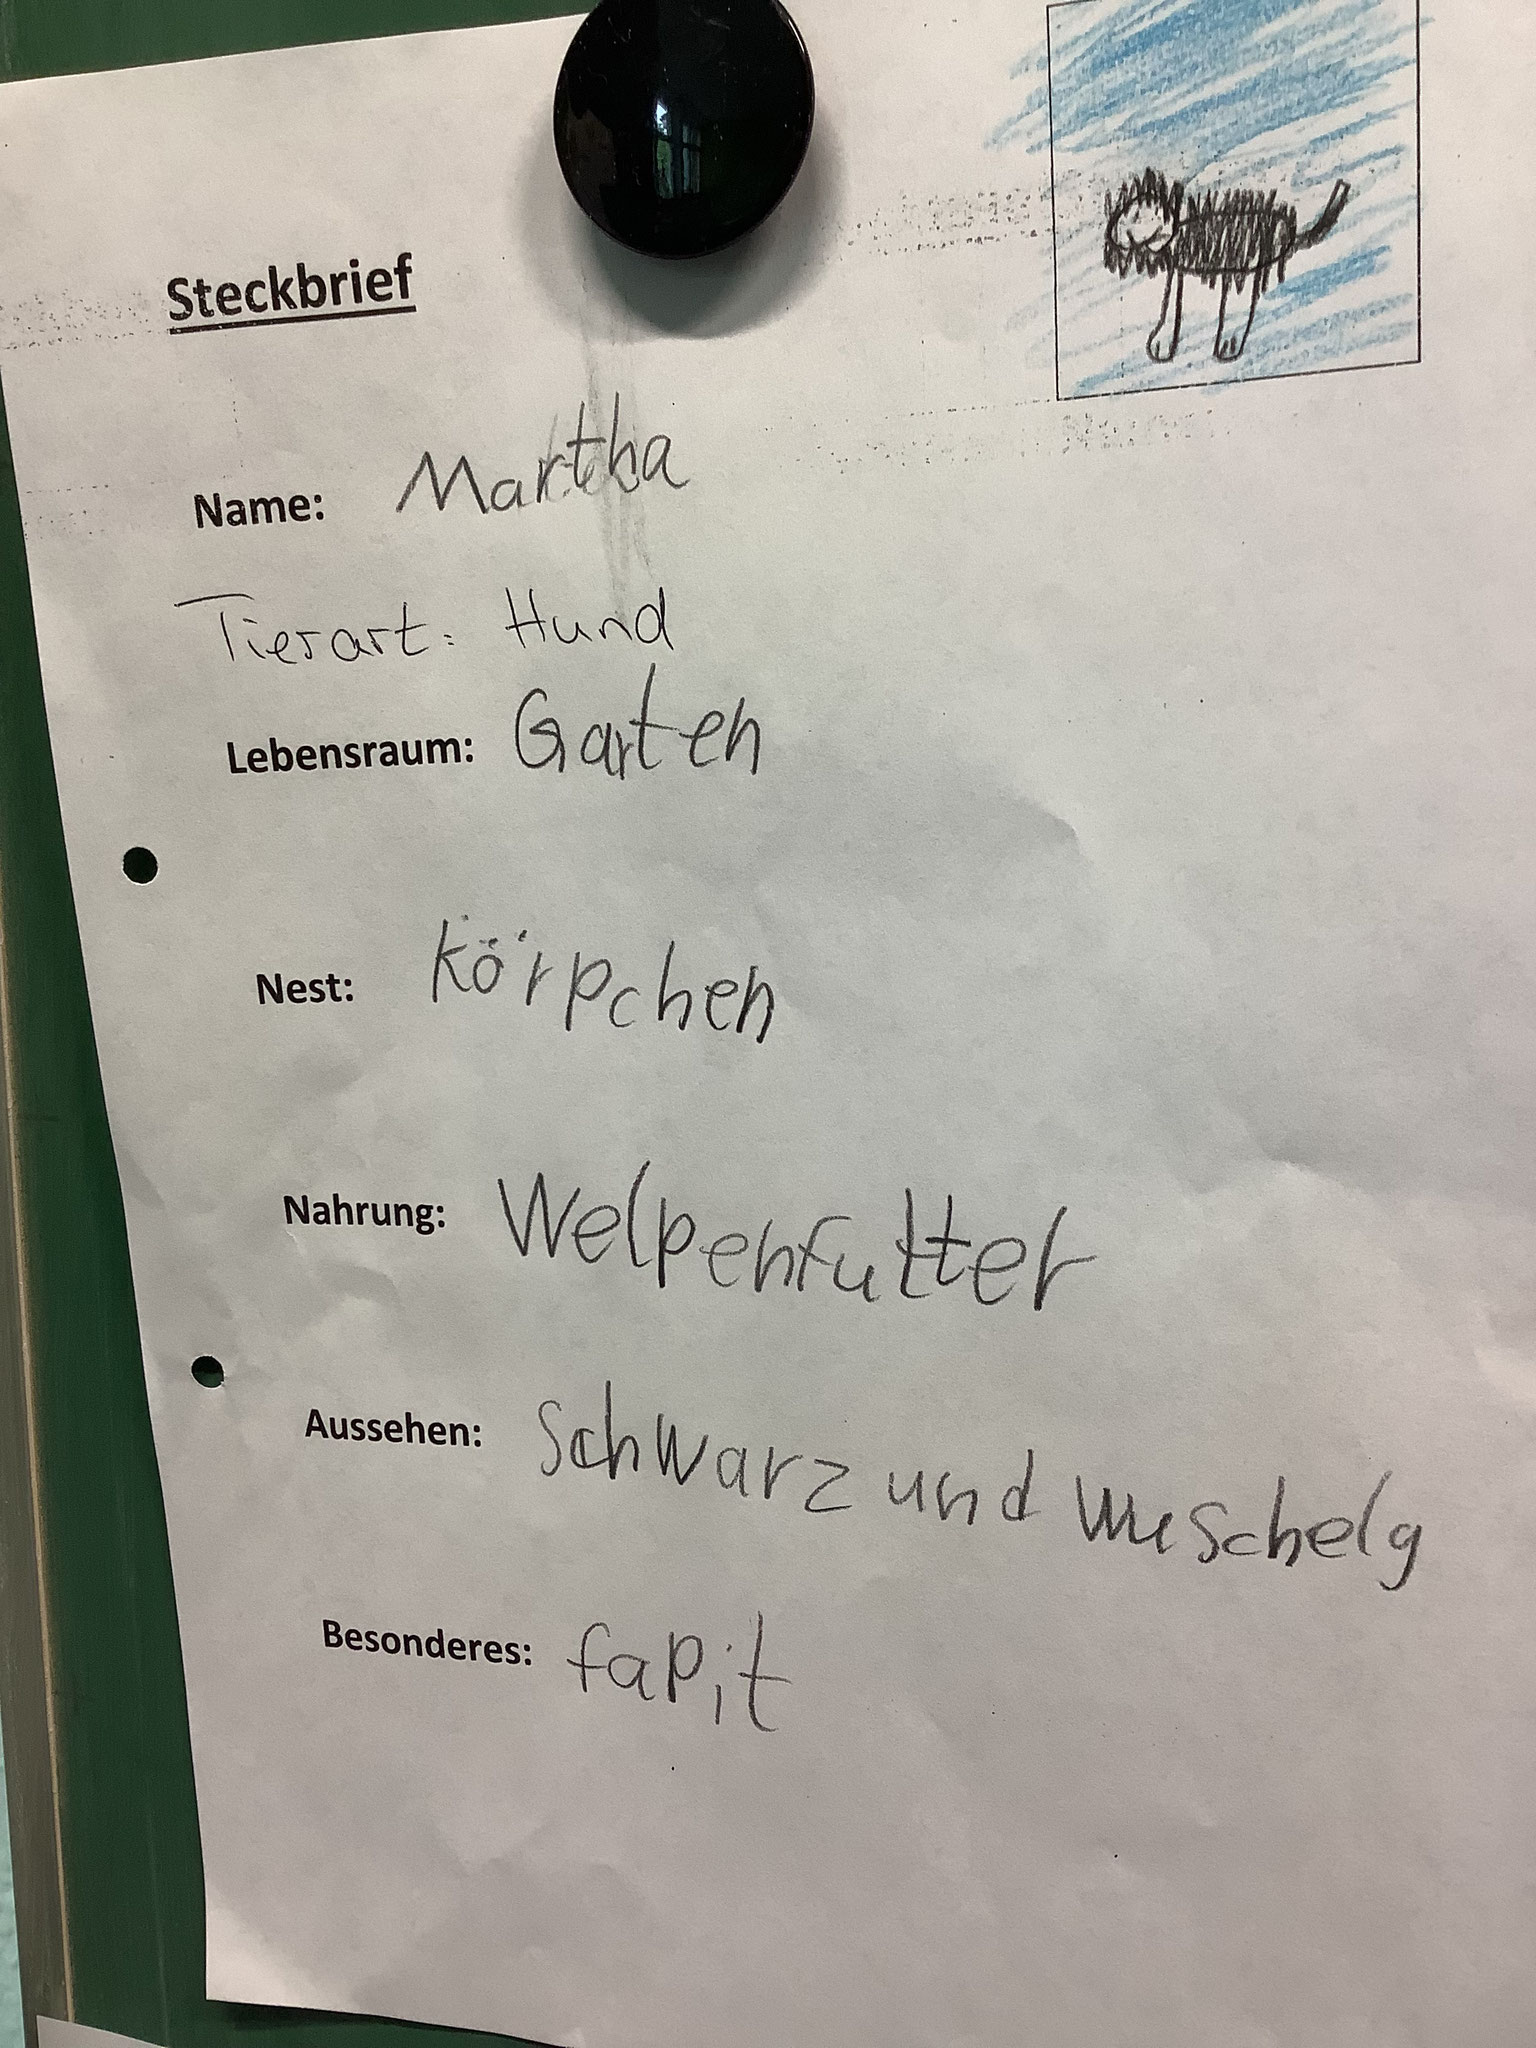 Steckbrief
Name: Martha
Tierart: Hund
Lebensraum: Garten
Nest: Körpchen
Nahrung: Welpenfutter
Aussehen: schwarz und wuschelg
Besonderes: fapit